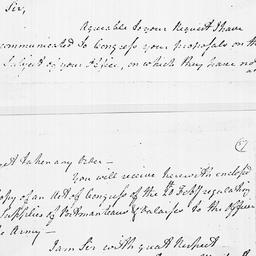 Sir,
Agreable to your Request I have
communicated to Congress your proposals on the
Subject of your Office, on which they have not
as
yet taken any Order—
You will receive herewith enclosed
Copy of an Act of Congress of the 20 Feby regulating
Supplies of Portmanteaus & Valaises to the Officers
the Army—
I am Sir with great Respect